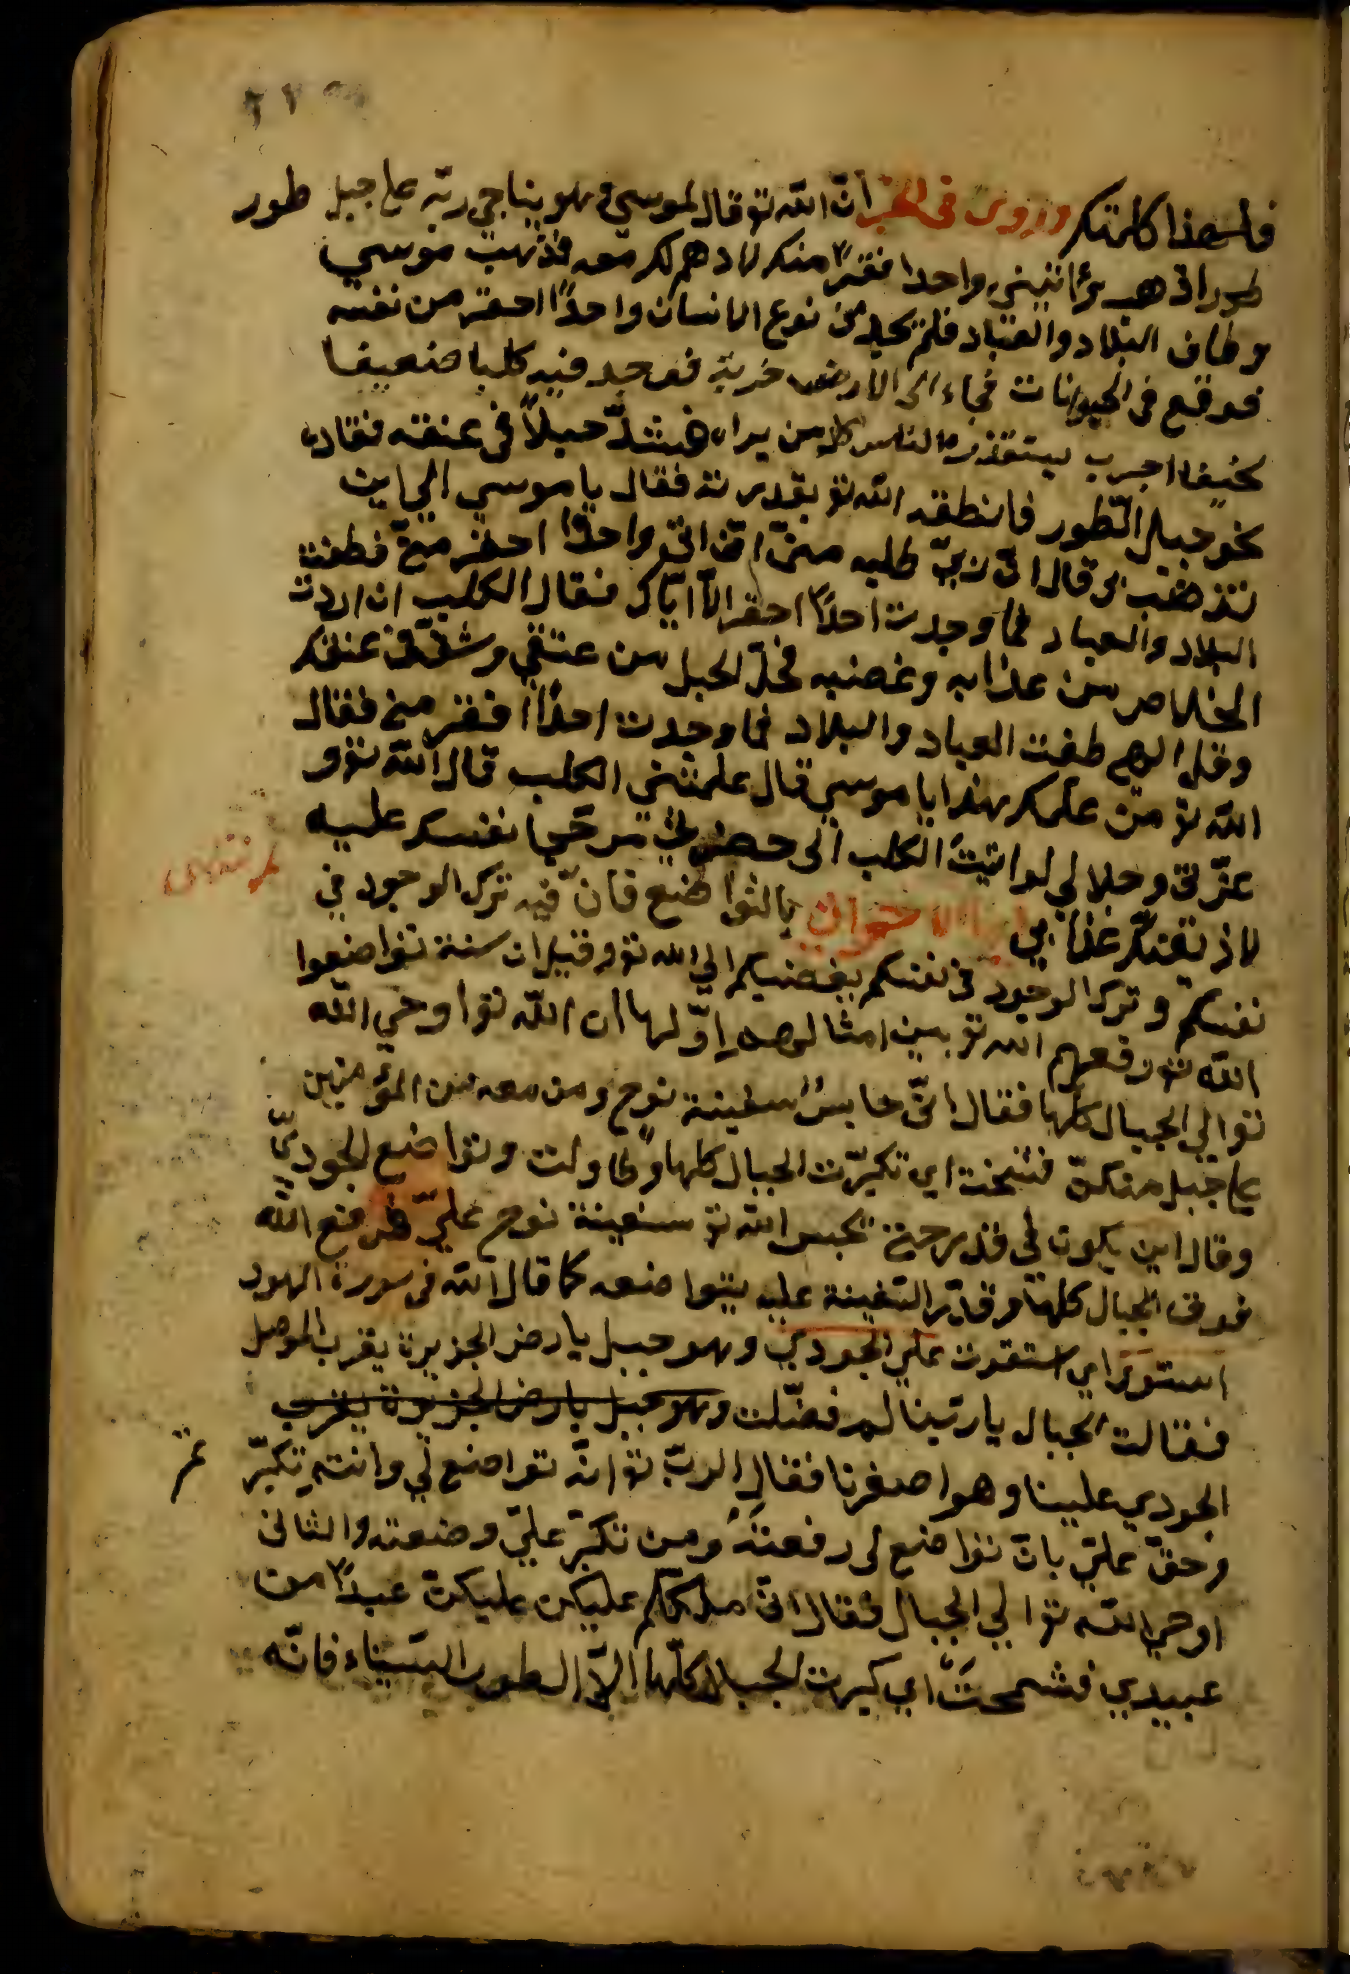 فلهذا كلمتك وروى فى الخبر انّ الله تو قال لموسى وهو يناجى ربّه على جبل طور
طور اذهب واحدا منك لا معه فذهب موسي
وطاف البلاد والعباد فلم يجد من نوع الانسان واحدًا احقر من نفسه
فوقع فى الحيوانات فجاء الى الارض خربة فوجد فيه كلبا ضعيفا
نحيفا اجرب يستقذره الناس كل من يراه فشدّ حبلاً فى عنقه فقاده
نحو جبل الطّور فانطقه الله تو بقدرته فقال يا موسي الي اين
تذهب بى قال انّ ربّى طلبه منّى ان واحدًا احقر منّى فطفت
البلاد والعباد فما وجدت احدًا احقر الاّ ايّاك فقال الكلب ان اردت
الخلاص من عذابه وغضبه فحلّ الحبل من عنقي وشدّ فى عنقك
وقل الهى طفت العباد والبلاد فما وجدت احدًا افقر منى فقال
الله تو من علّمك بهذا يا موسي قال علمتنى الكلب قال الله تو و
عزّتى وجلالي لو اتيت الكلب الى حضرتى مرجّحا نفسك عليه
لاذيقنّك عذابي ايها الاخوان بالتواضع فانّ فيه ترك الوجود فى
نفسكم وترك الوجود فى نفسكم الي الله تو وقيل ان ستة تواضعوا
الله تو رفعهم الله تو بين امثالهم اوّلها ان الله تو اوحي الله
تو الي الجبال كلّها فقال انّى حابس سفينة نوح ومن معه من المؤمنين
على جبل منكنّ فشمخت اى تكبّرت الجبال كلها وطاولت وتواضع الجوديّ
وقال اين يكون لى قدر حتى يحبس الله تو سفينة نوح عليّ فرفع الله
فوق الجبال كلها وقرّر السّفينة عليه بتواضعه كما قال الله فى سورة الهود
استوى اى استقرت على الجودي وهو جبل بارض الجزيرة بقرب الموصل
فقالت الجبال يا ربّنا لم فضّلت وهو جبل بارض الجزيرة بقرب
الجودي علينا وهو اصغرنا فقال الربّ تو انّه تواضع لي وانتم تكبّر
تم
وحقّ عليّ بان تواضع لى رفعته ومن تكبّر عليّ وضعته والثانى
اوحي الله تو الي الجبال فقال انّى مكلّم عليكن عليكنّ عبدًا من
عبيدي فشمخت اى كبرت الجبال كلّها الاّ الطور السّيناء فانّه